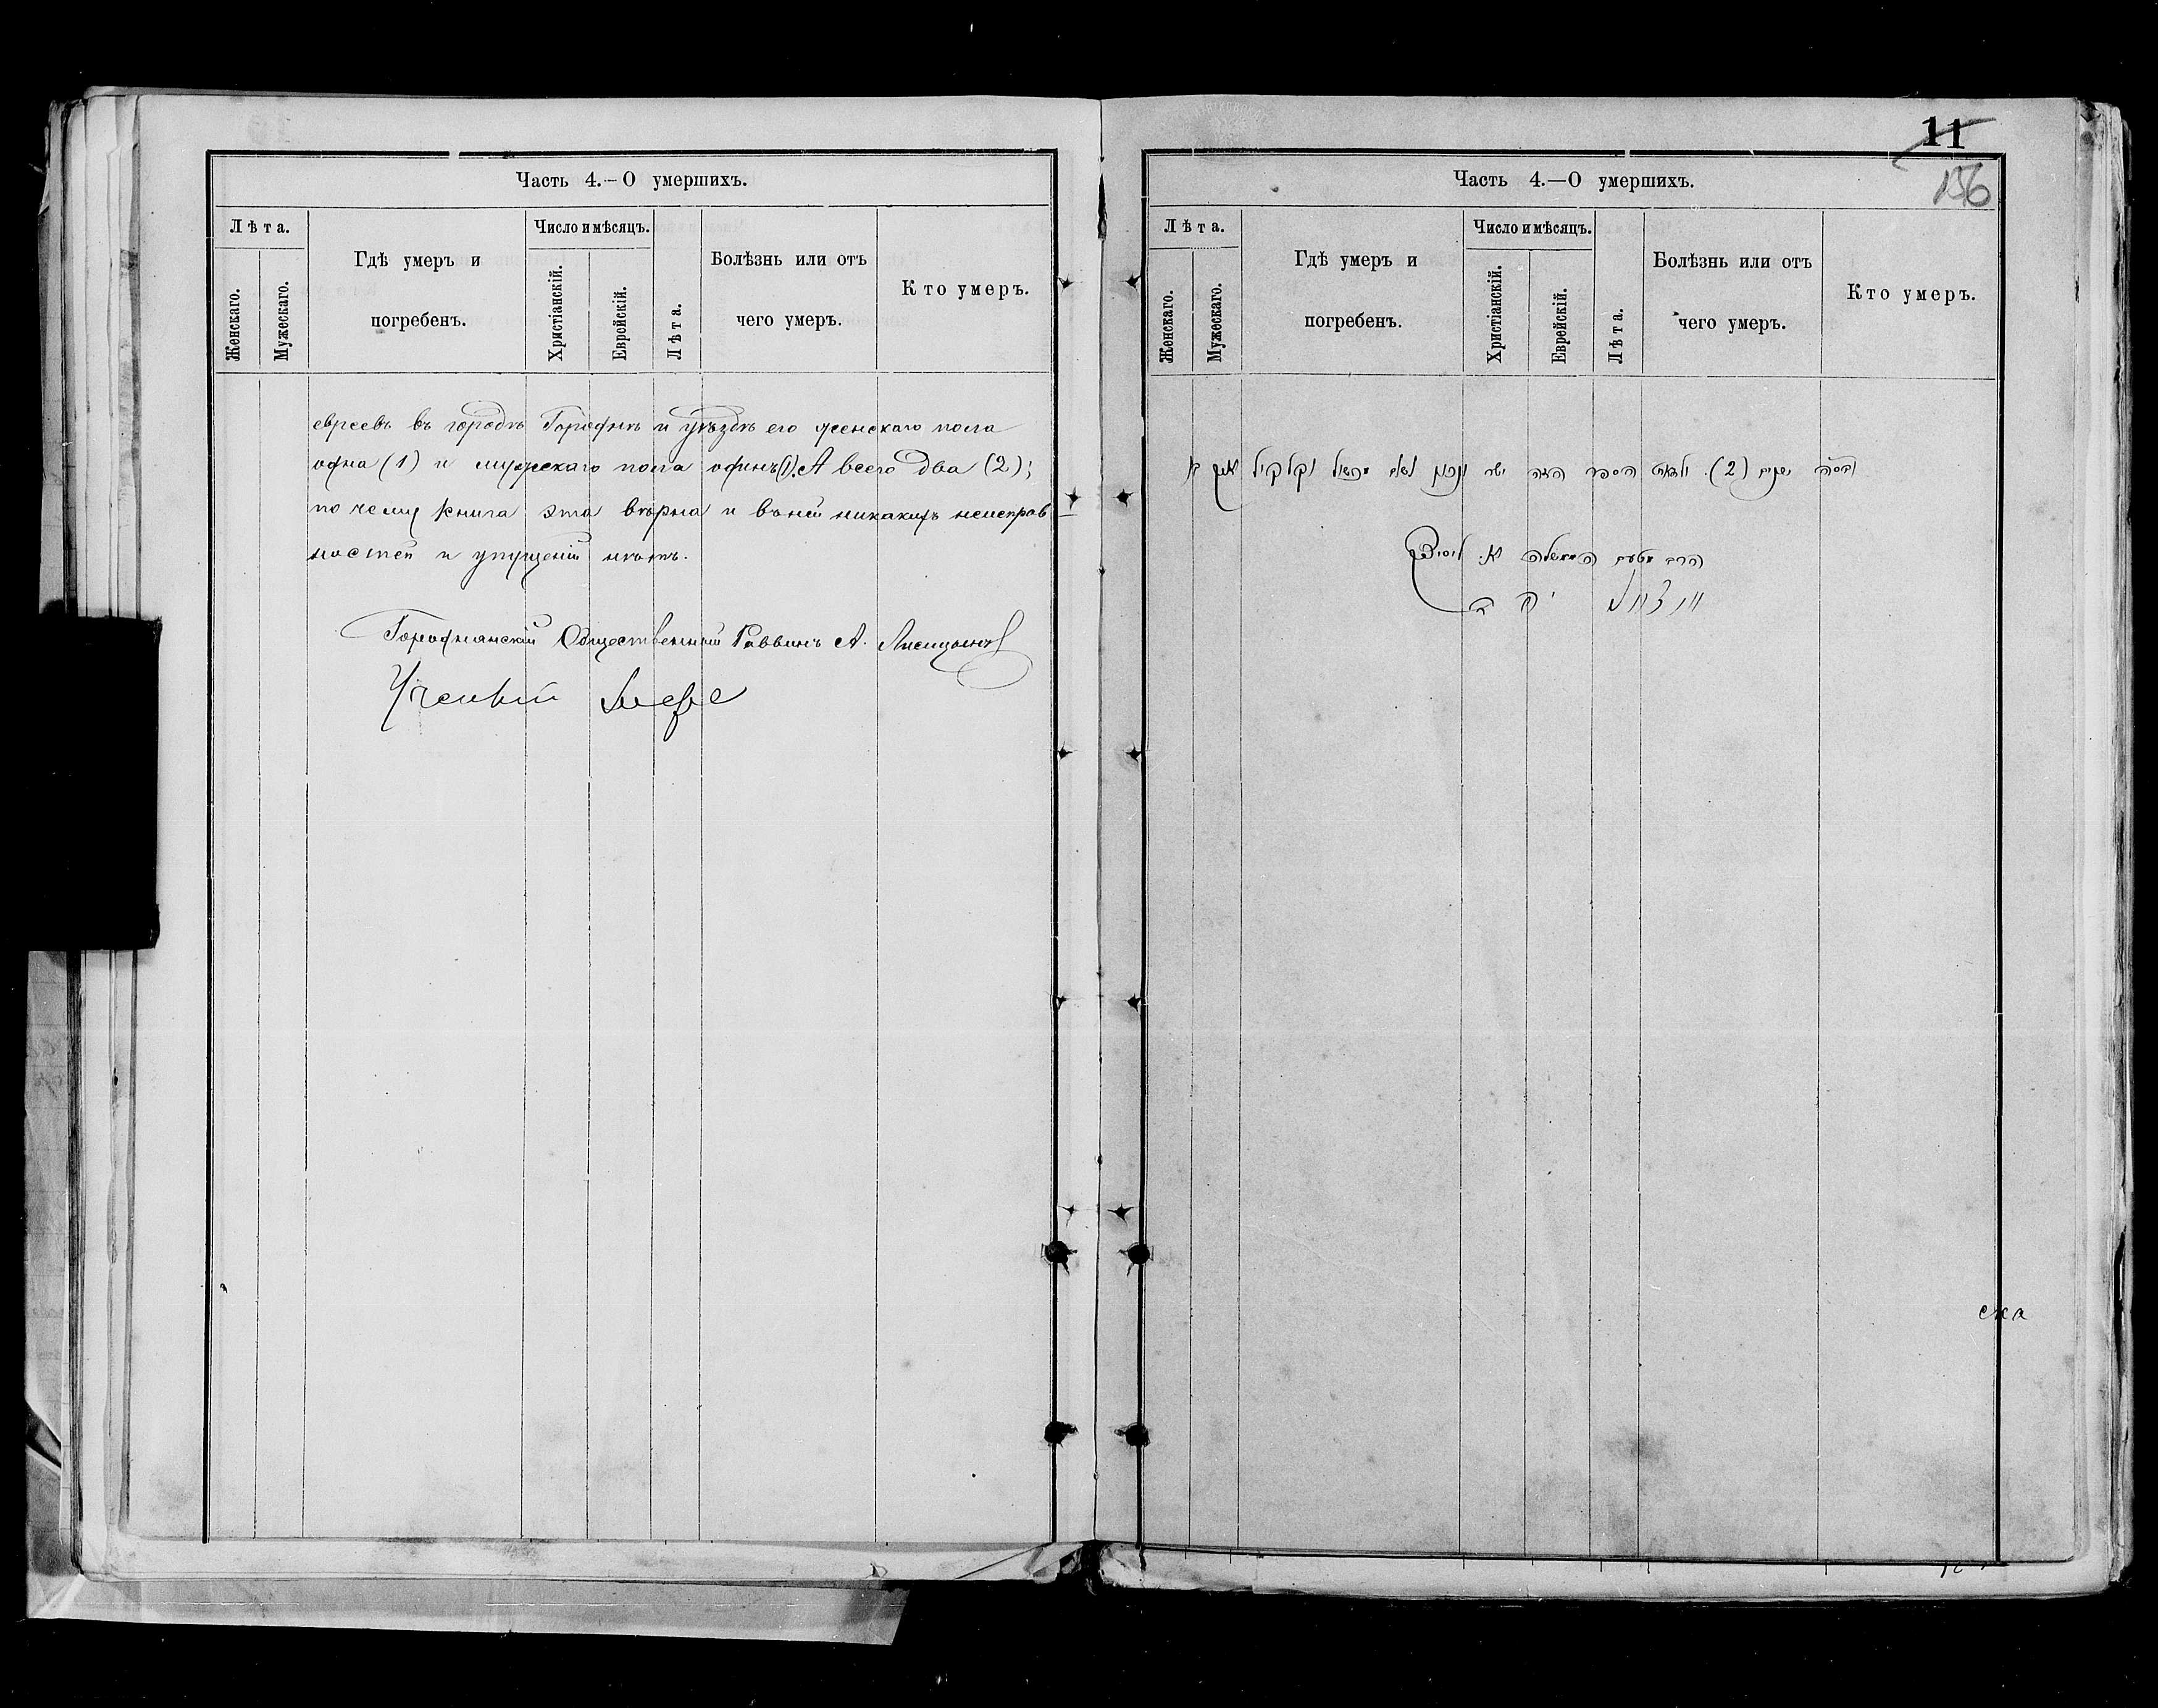 Часть 4.—О умершихъ.
Лѣта.
Женскаго.
Мужескаго.
Гдѣ умеръ и
погребенъ.
Число и мѣсяцъ.
Христіанскій.
Еврейскій.
Лѣта.
Болѣзнь или отъ
чего умеръ.
Кто умеръ.
евреевъ въ городѣ Городнѣ и уѣздѣ его женскаго пола
одна (1) и мужескаго пола одинъ (1). А всего два (2);
по чему книга эта вѣрна и въ ней никакихъ неисправ
ностей и упущеній нѣтъ.
Городнянскій Общественный Раввинъ А.
Ученый
11
156
Часть 4.—О умершихъ.
Лѣта.
Женскаго.
Мужескаго.
Гдѣ умеръ и
погребенъ.
Число и мѣсяцъ.
Христіанскій.
Еврейскій.
Лѣта.
Болѣзнь или отъ
чего умеръ.
Кто умеръ.
שנים (2). הספר הזה ישר ונכון
הרב מטעם הממשלה א.
ска